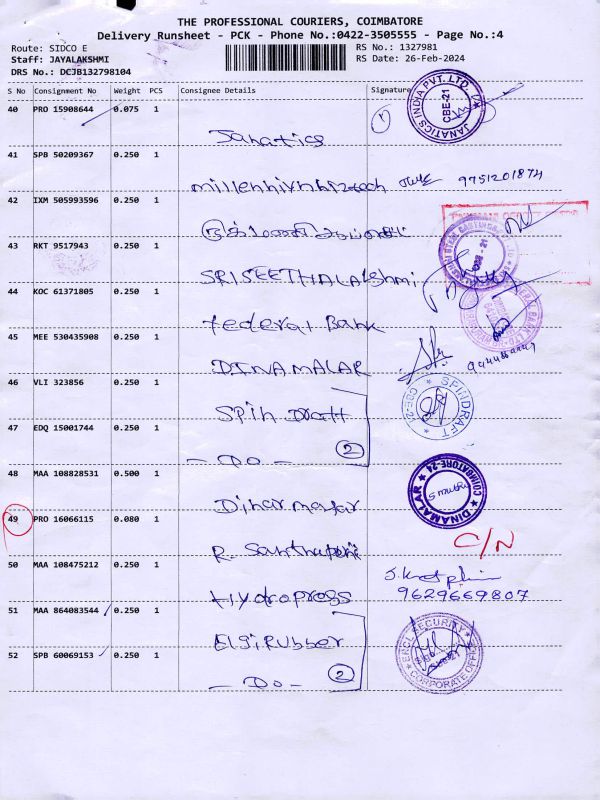 THE PROFESSIONAL COURIERS, COIMBATORE
Delivery Runsheet - PCK - Phone No.:0422-3505555 - Page No.:4
Route: SIDCO E
RS No.: 1327981
Staff: JAYALAKSHMI
RS Date: 26-Feb-2024
DRS No.: DCJB132798104
S No Consignment No Weight PCS Consignee Details Signature
40 PRO 15908644 0.075 1
Janatics
JANATICS INDIA PVT. LTD. CBE-21
41 SPB 50209367 0.250 1
9751201874
42 IXM 505993596 0.250 1
43 RKT 9517943 0.250 1
SRISEETHALAkshmi
44 KOC 61371805 0.250 1
federal Bank
45 MEE 530435908 0.250 1
DINAMALAR
46 VLI 323856 0.250 1
Spin Draft
SPINDRAFT CBE-21
47 EDQ 15001744 0.250 1
- Do - 2
48 MAA 108828531 0.500 1
Dinamalar
DINAMALAR COIMBATORE-24
49 PRO 16066115 0.080 1
C/N
R.
50 MAA 108475212 0.250 1
Hydropress
9629669807
51 MAA 864083544 0.250 1
Elgi Rubber
ERCL SECURITY CORPORATE OFFICE
52 SPB 60069153 0.250 1
- Do - 2